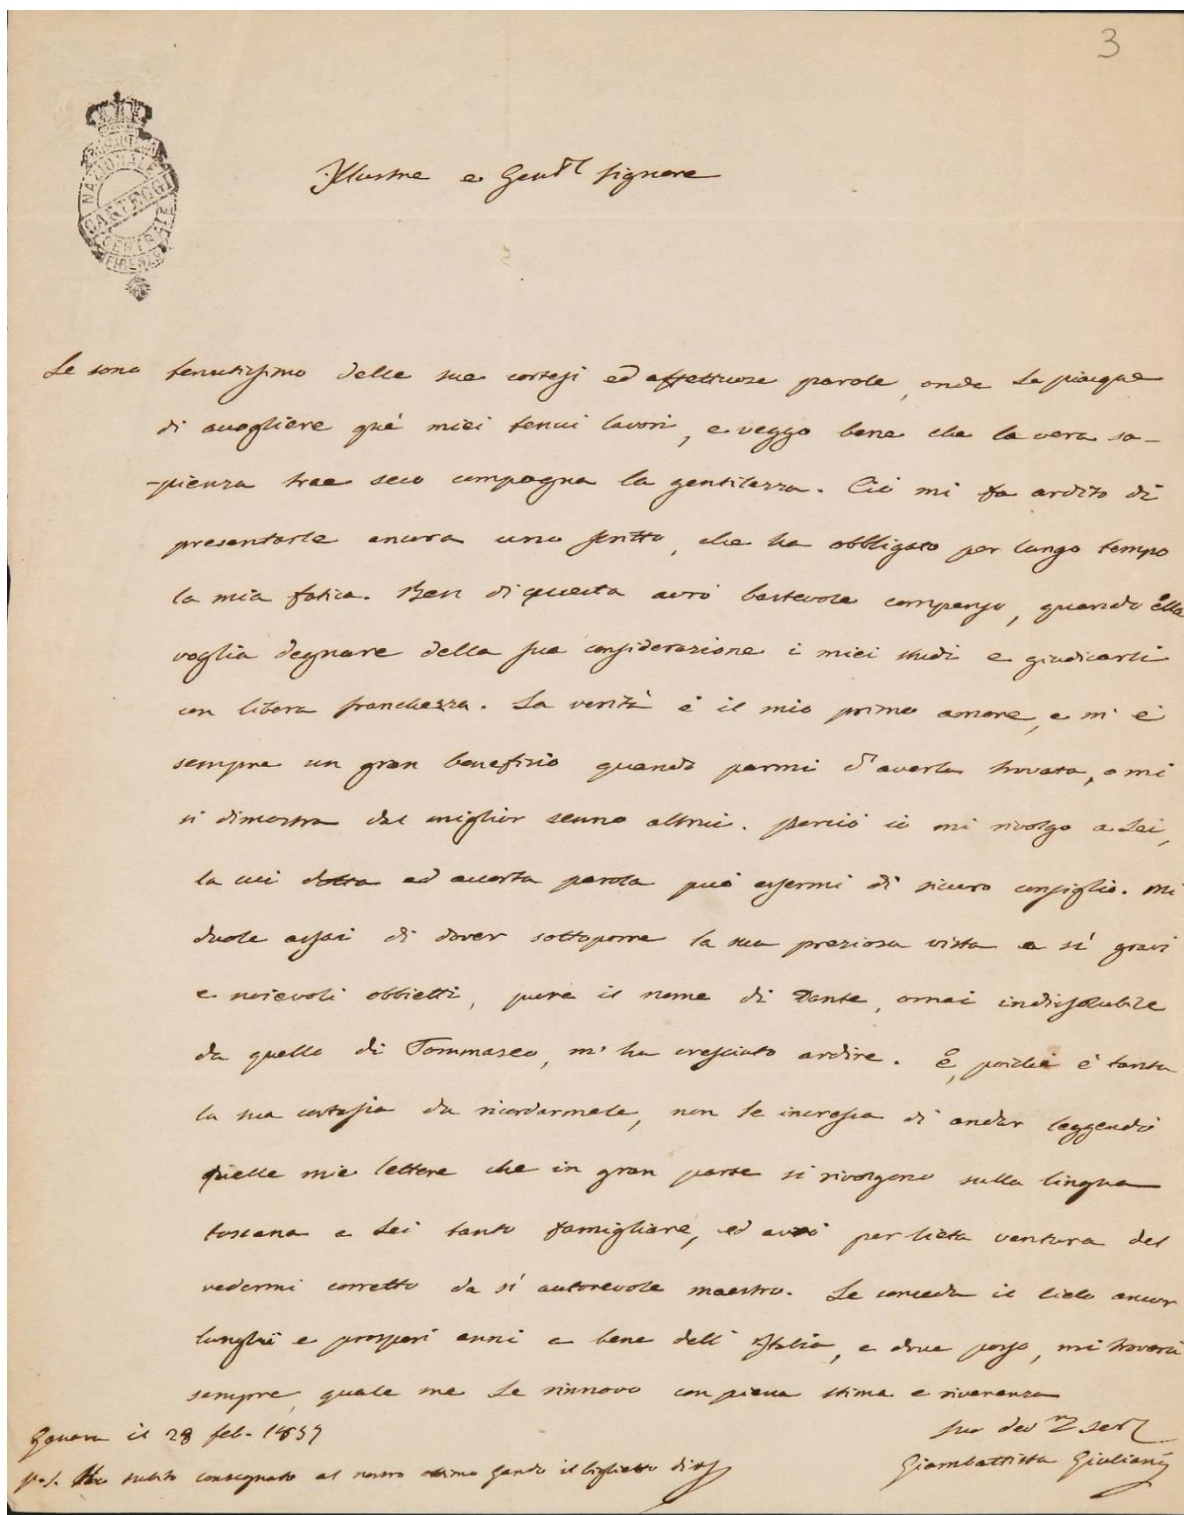 3
BIBLIOTECA
NAZIONALE
CARTEGGI
CENTRALE
FIRENZE
Illustre e Gentil Signore
Le sono tenutissimo delle sue cortesi ed affettuose parole, onde Le piacque
di accogliere que' miei tenui lavori, e veggo bene che la vera sa-
-pienza trae seco compagna la gentilezza. Ciò mi fa ardito di
presentarle ancora uno scritto, che ha obbligato per lungo tempo
la mia fatica. Ben di questa avrò bastevole compenso, quando Ella
voglia degnare della sua considerazione i miei studi e giudicarli
con libera franchezza. La verità è il mio primo amore, e m' è
sempre un gran benefizio quando parmi d'averla trovata, o mi
si dimostra dal miglior senno altrui. Perciò io mi rivolgo a Lei,
la cui dotta ed accorta parola può essermi di sicuro consiglio. Mi
duole assai di dover sottoporre la sua preziosa vista a sì gravi
e noievoli obbietti, pure il nome di Dante, omai indissolubile
da quello di Tommaseo, m' ha cresciuto ardire. E, poichè è tanta
la sua cortesia da ricordarmele, non le incresca di andar leggendo
quelle mie lettere che in gran parte si rivolgono sulla lingua
toscana a Lei tanto famigliare, ed avrò per lieta ventura del
vedermi corretto da sì autorevole maestro. Le conceda il cielo ancor
lunghi e prosperi anni a bene dell' Italia, e dove posso, mi troverà
sempre, quale me Le rinnovo con piena stima e riverenza
Genova il 28 feb. 1859
Suo dev.m ser
Giambattista Giuliani
p.s. Ho subito consegnato al nostro ottimo il biglietto